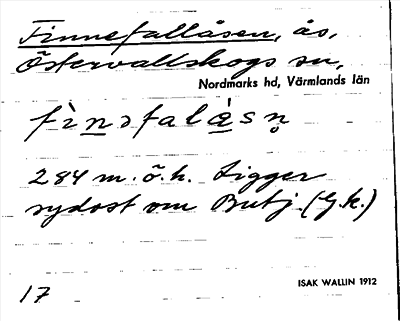 Finnefallåsen, ås,
Östervallskogs sn,
Nordmarks hd, Värmlands län
fìnəfalå̀sn̥
284 m. ö. h. Ligger
sydost om Butj. (G.k.)
ISAK WALLIN 1912
17